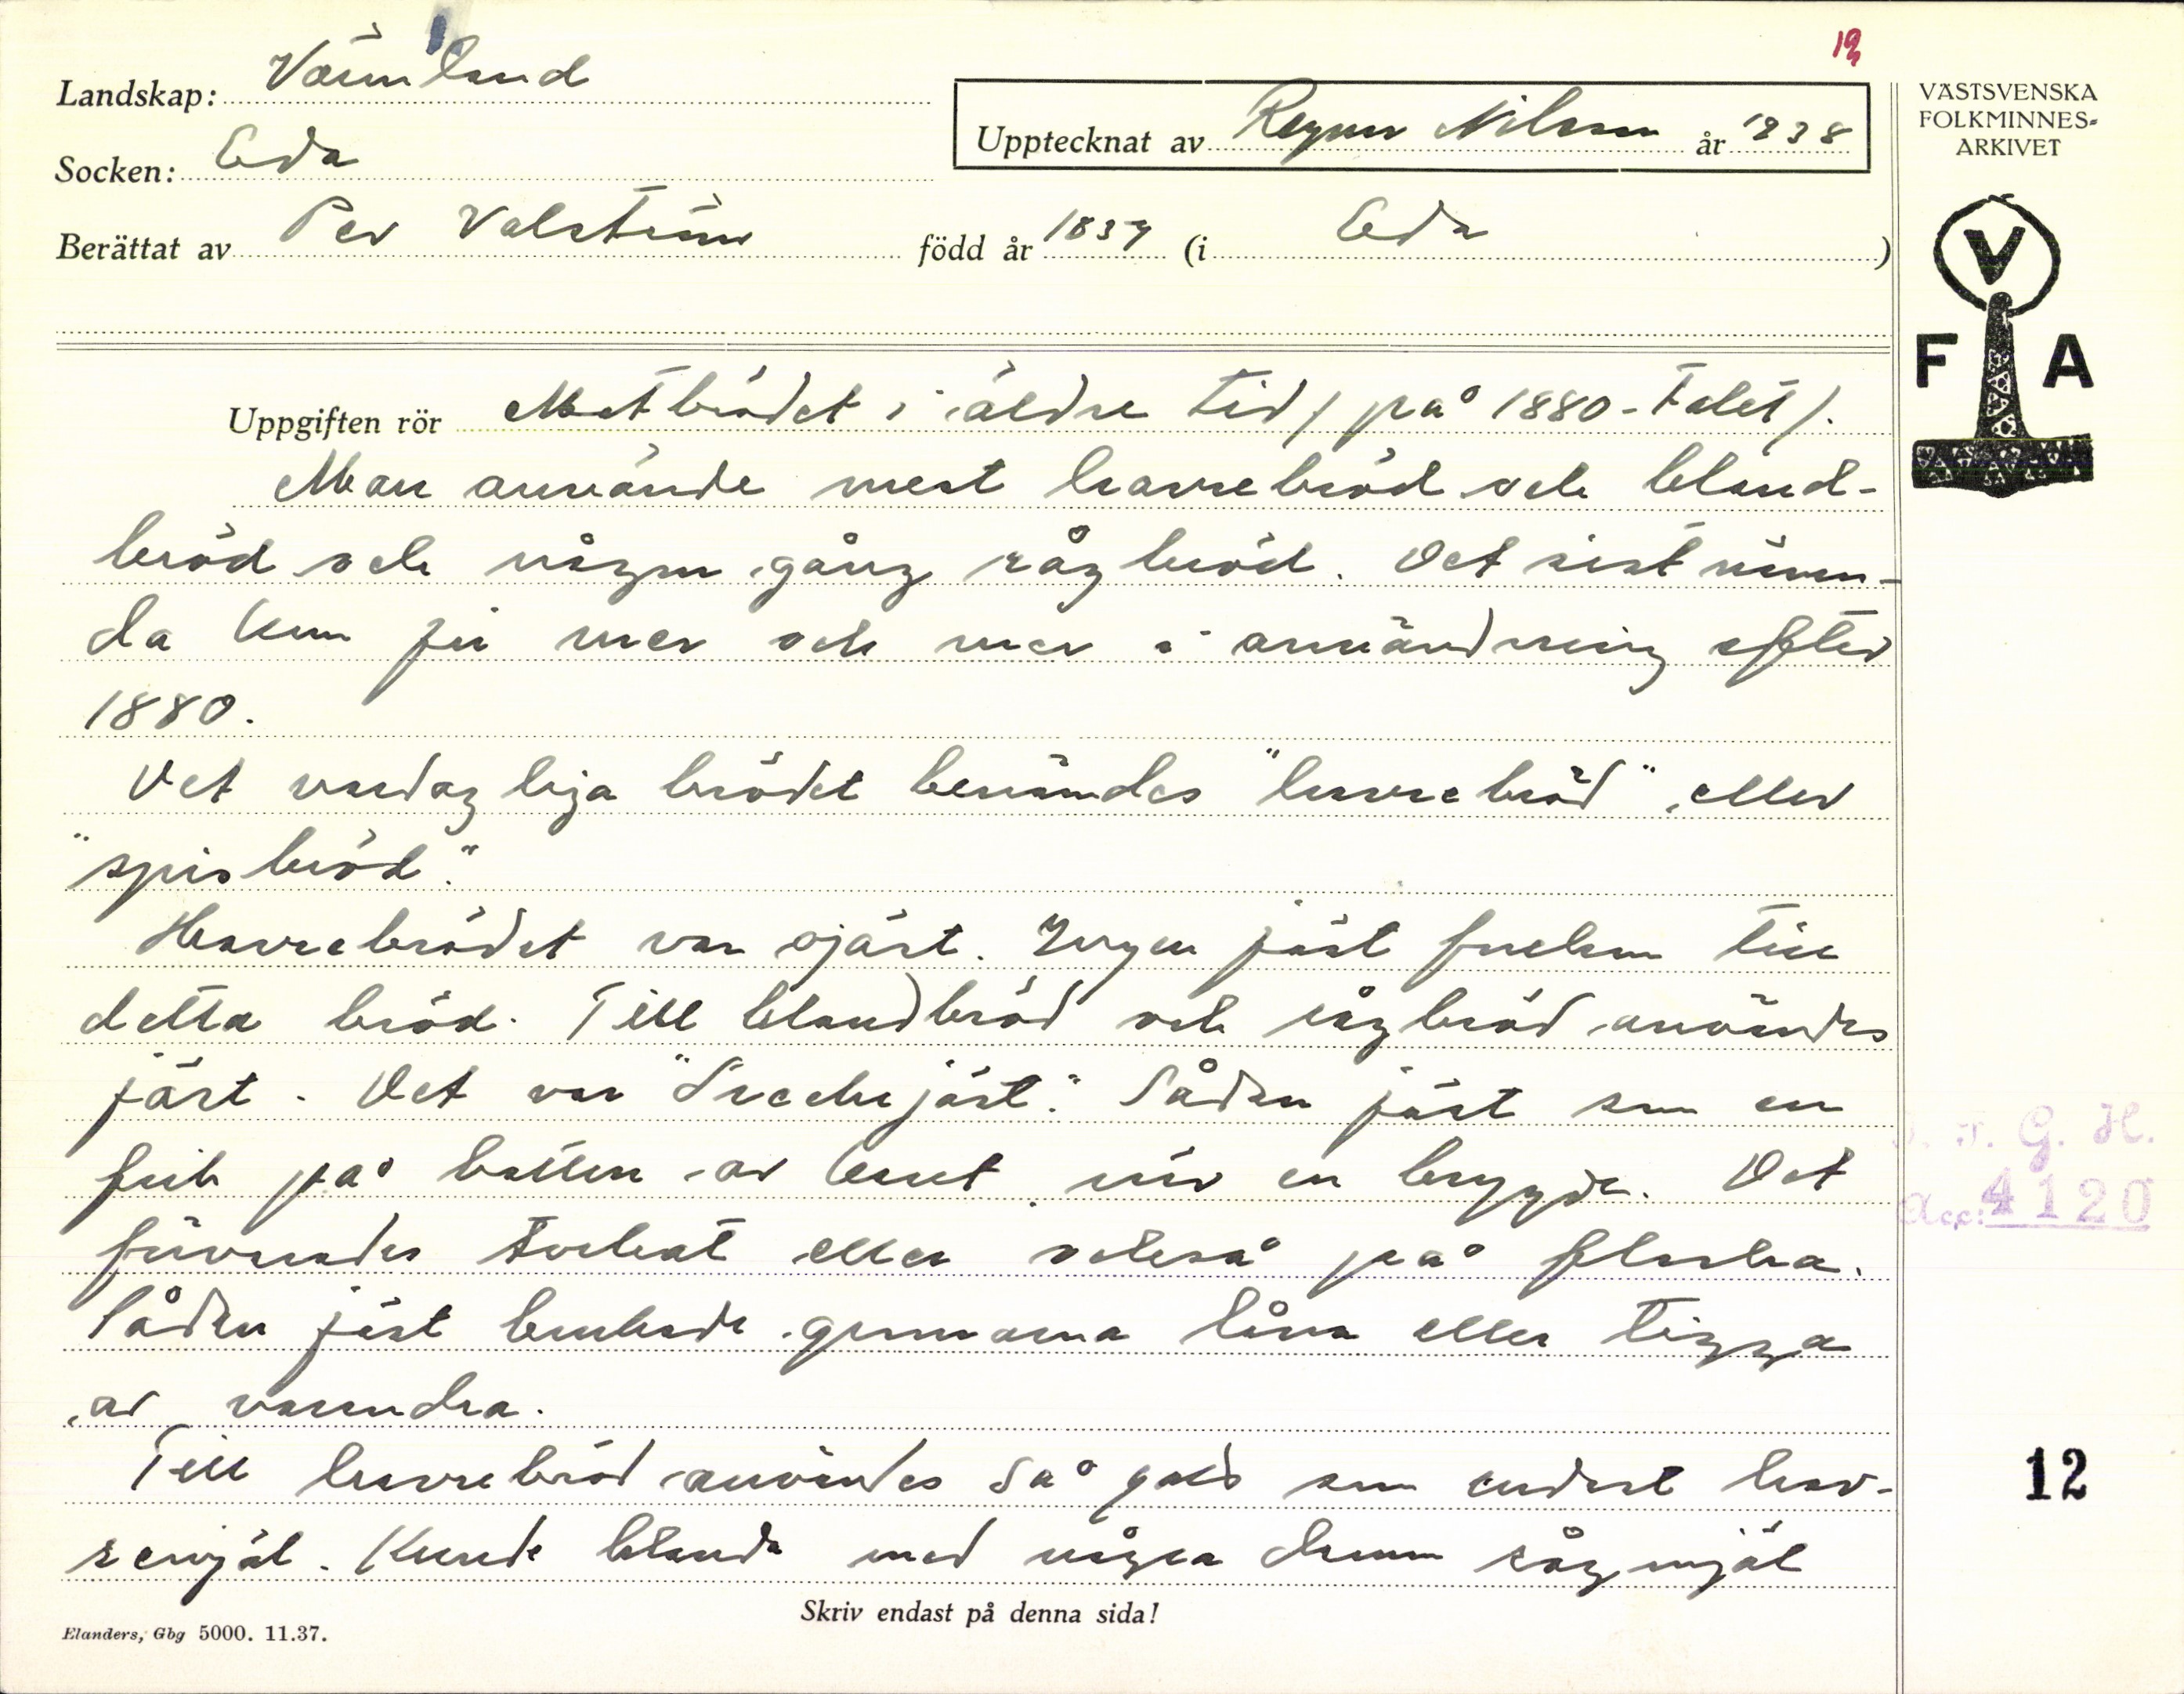 19
Landskap: Värmland
VÄSTSVENSKA
FOLKMINNES-
ARKIVET
Upptecknat av Ragnar Nilsson år 1938
Socken: Eda
Berättat av Per Valström född år 1857 (i Eda )
V
F A
Uppgiften rör Matbrödet i äldre tid / på 1880-talet /.
Man använde mest havrebröd och bland-
bröd och någon gång rågbröd. Det sist nämn-
da kom ju mer och mer i användning efter
1880.
Det vardagliga brödet benämdes "havrebröd", eller
"spisbröd".
Havrebrödet var ojäst. Ingen jäst fordras till
detta bröd. Till blandbröd och rågbröd användes
jäst. Det var "Drickejäst". Sådan jäst som en
fick på botten av karet när en bryggde. Det
förvarades torkat eller också på flaska.
Sådan jäst brukade grannarna låna eller tigga
av varandra.
Till havrebröd användes så gott som endast hav-
remjöl. Kunde blanda med några drumm rågmjöl
G. H.
Acc: 4120
12
Skriv endast på denna sida!
Elanders, Gbg 5000. 11.37.